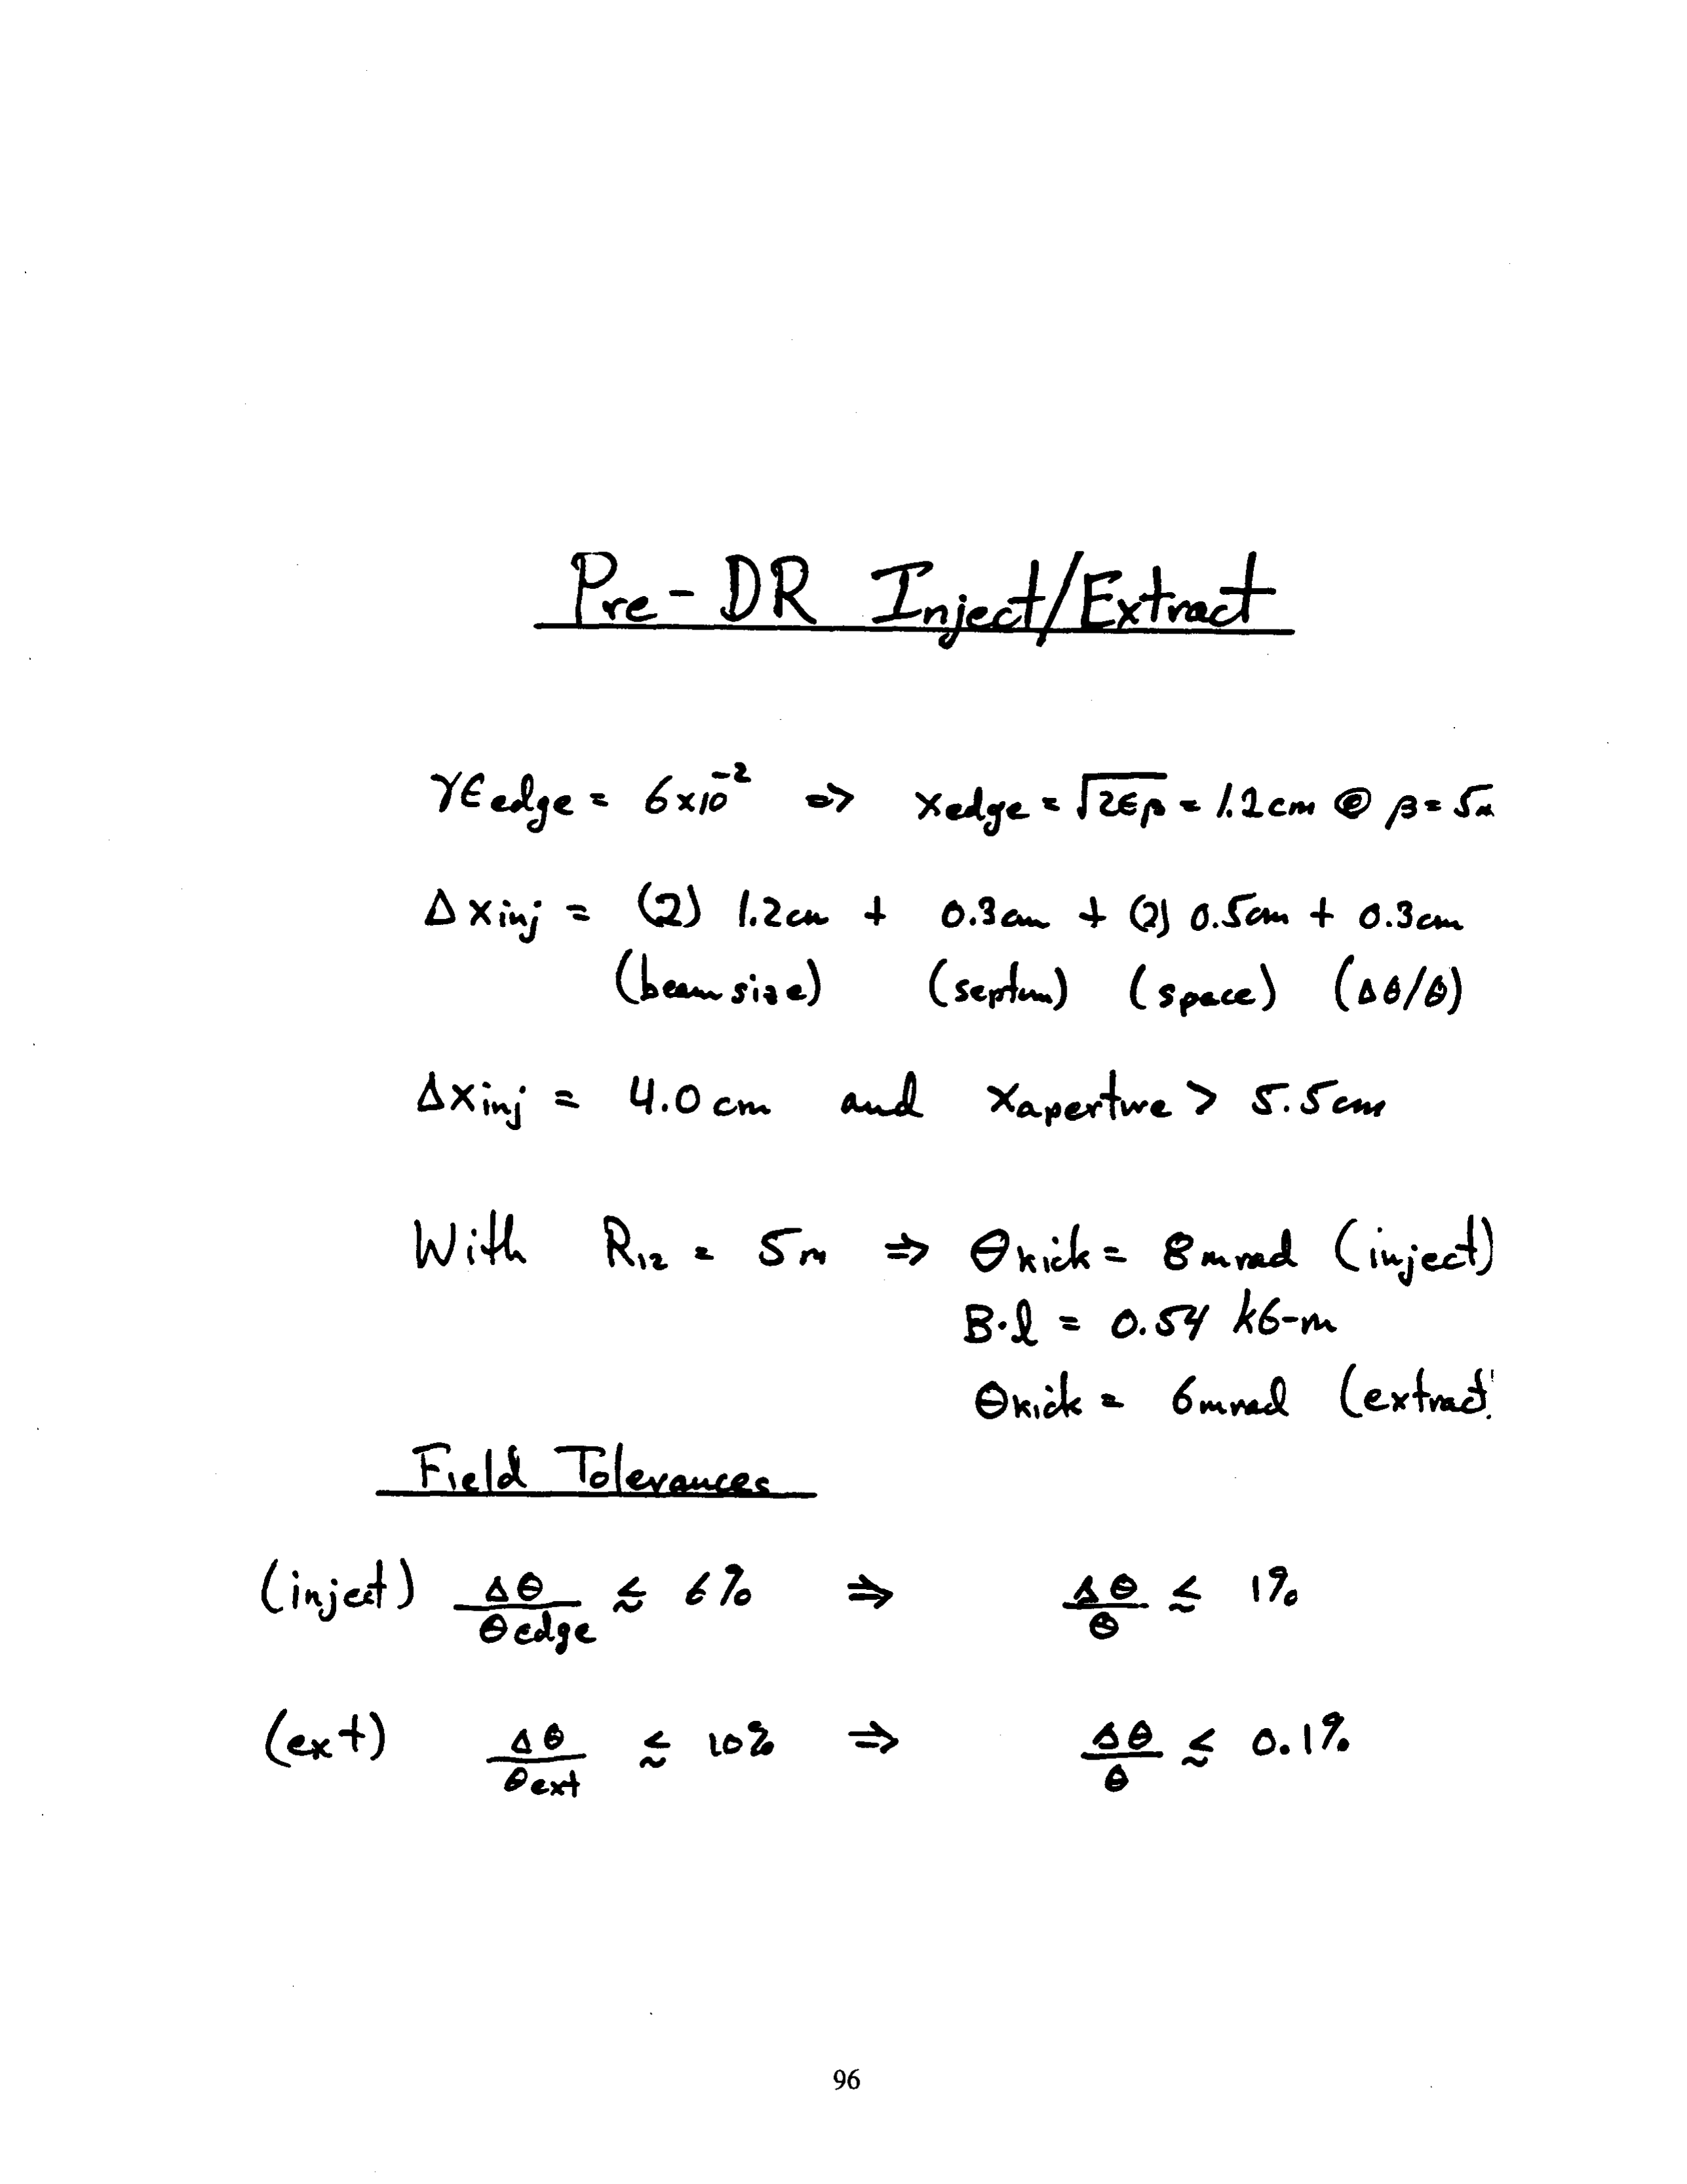 Pre-DR Inject/Extract
γϵedge = 6x10⁻² => xedge = √2ϵβ = 1.2cm @ β = 5m
Δxinj = (2) 1.2cm + 0.3cm + (2) 0.5cm + 0.3cm
(beam size) (septum) (space) (Δθ/θ)
Δxinj = 4.0cm and xaperture > 5.5cm
With R₁₂ = 5m => θkick = 8mrad (inject)
B·l = 0.54 kG-m
θkick = 6mrad (extract)
Field Tolerances
(inject) Δθ/θedge ≲ 6% => Δθ/θ ≲ 1%
(ext) Δθ/θext ≲ 10% => Δθ/θ ≲ 0.1%
96